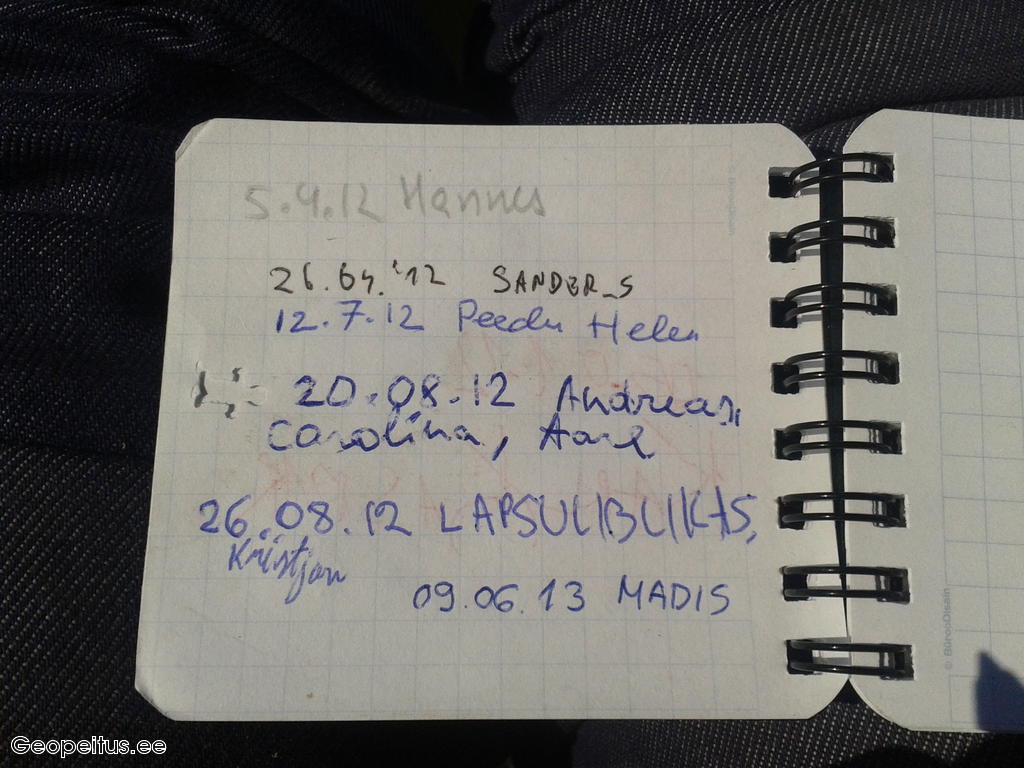 5.4.12 Hannes
26.04.'12 SANDER_S
12.7.12 Peedu Helen
20.08.12 Andreas,
Carolina, Aare
26.08.12 LAPSULIBLIKAS,
Kristjan
09.06.13 MADIS
© BürooDisain
Geopeitus.ee